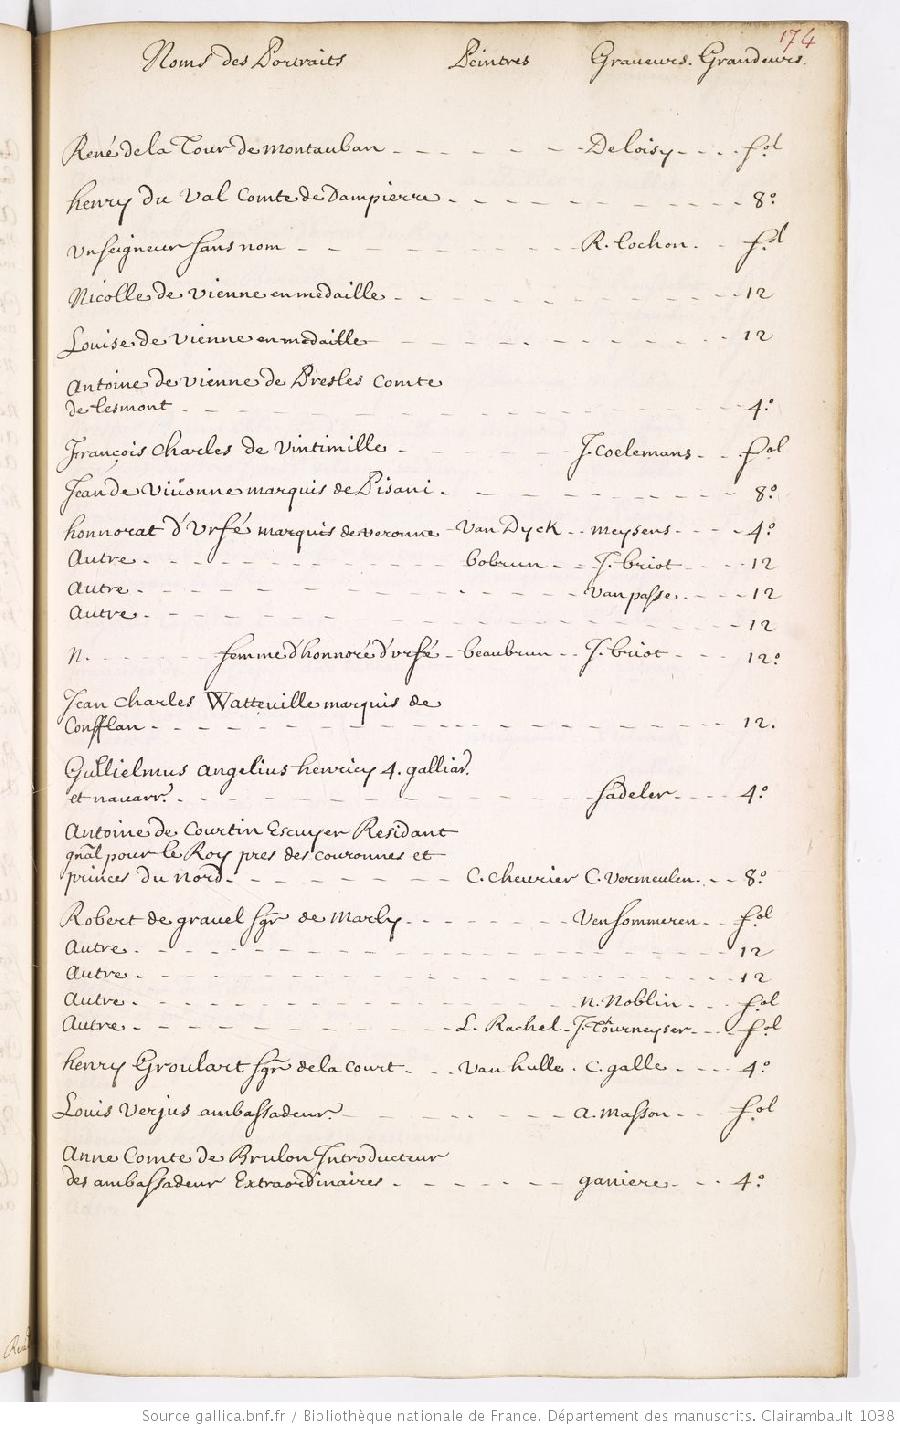 174
Noms des Portraits Peintres Graveurs. Grandeurs.
René de la Tour de montauban - - - - - - Deloisy - - - fol
henry du Val Comte de Dampierre - - - - - - - - 8º
Un seigneur sans nom - - - - - - R. Cochon. - - fol
Nicolle de Vienne en medaille - - - - - - - - 12
Louise de Vienne en medaille - - - - - - - - 12
Antoine de Vienne de Presles Comte
de lesmont - - - - - - - - - - 4º
François Charles de Vintimille - - - - J. Coelemans - - fol
Jean de Viuonne marquis de Pisani - - - - - - - 8º
honnorat d'Urfé marquis de veronne - Van Dyck - - meysens - - - 4º
Autre - - - - - - - bobrun - - J. briot - - - 12
Autre - - - - - - - - - Van passe - - - 12
Autre - - - - - - - - - - - - 12
N. - - - femme d'honnoré d'urfé - beaubrun - - J. briot - - - 12º
Jean Charles Watteville marquis de
Confflan - - - - - - - - - - - 12.
Gullielmus angelius henricy 4. galliar.
et nauarr. - - - - - - - - sadeler - - - 4º
Antoine de Courtin Escuyer Residant
gnãl pour le Roy pres des couronnes et
princes du Nord. - - - - - - C. Cheurier C. Vermeulen. - - 8º
Robert de gravel sgr de Marly - - - - - Van sommeren - - fol
Autre - - - - - - - - - - - 12
Autre - - - - - - - - - - - 12
Autre - - - - - - - - - N. Noblin - - - fol
Autre - - - - - - - L. Rachel - J. Thourneyser - - - fol
henry Groulart sgr de la Court - - - Van hulle - C. galle - - - 4º
Louis Verjus ambassadeur. - - - - - - a. Masson - - fol
Anne Comte de Brulon Introducteur
des ambassadeur Extraordinaires - - - - - - ganiere - - - 4º
Source gallica.bnf.fr / Bibliothèque nationale de France. Département des manuscrits. Clairambault 1038